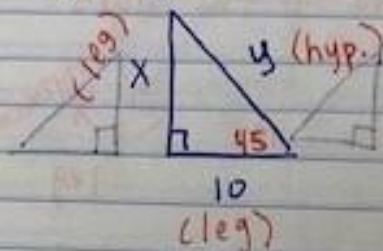 (leg) x y (hyp.)
45
10
(leg)